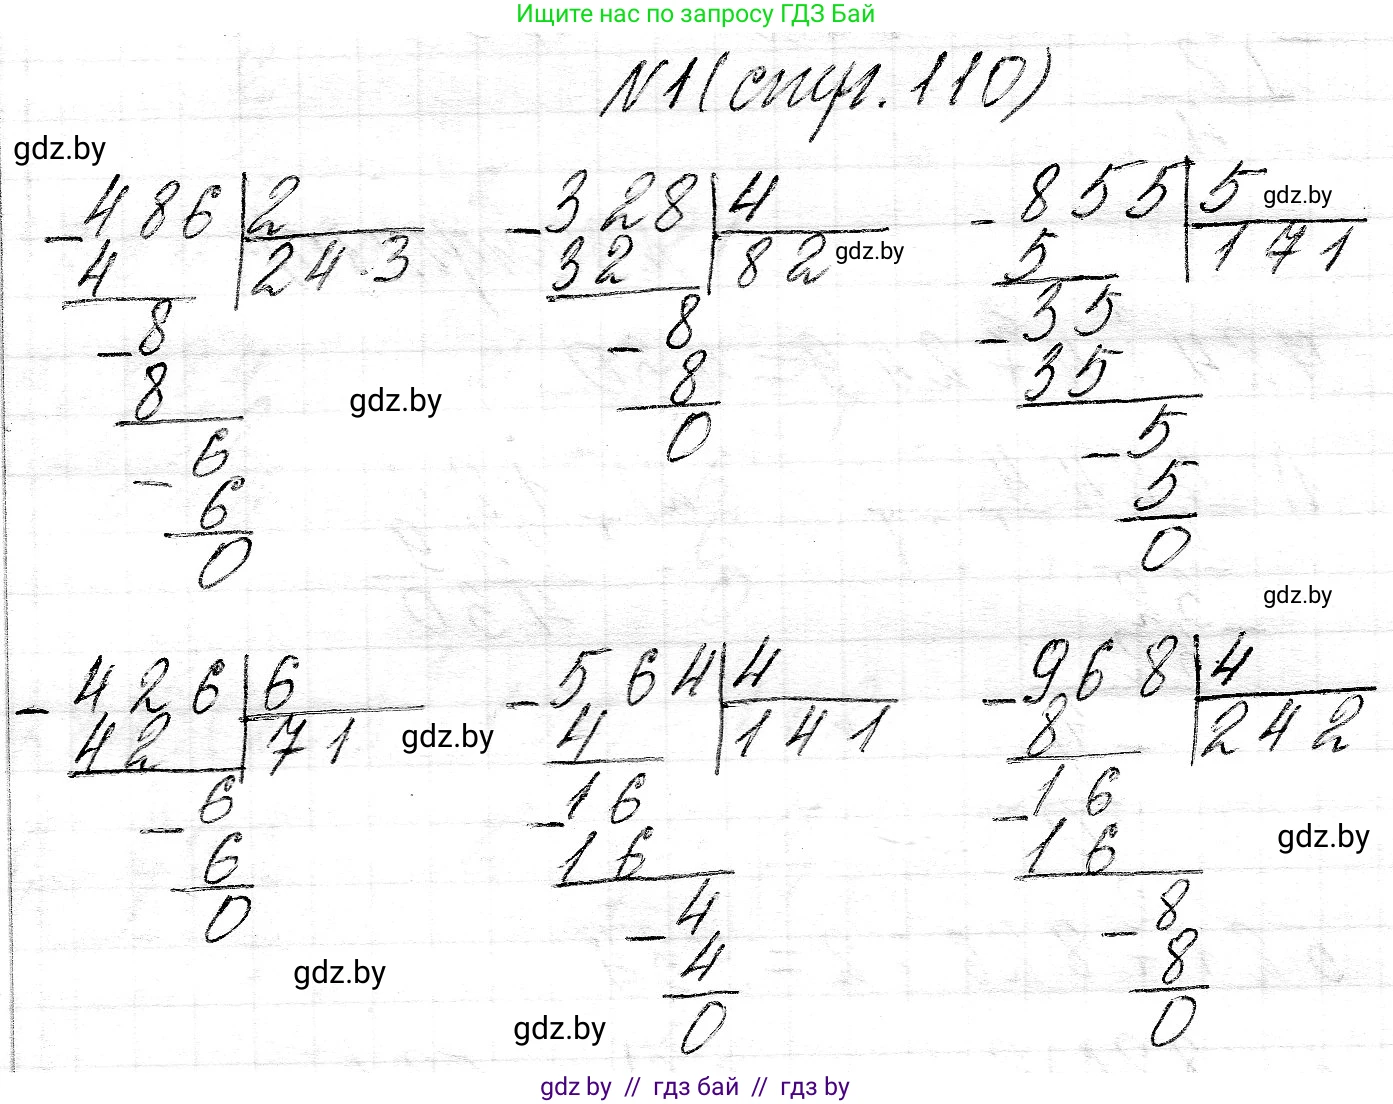 Ищите нас по запросу ГДЗ Бай
N1 (стр. 110)
gdz.by
486 2 328 4 855 5 gdz.by
4 243 32 82 gdz.by 5 171
8 8 35
8 8 35
gdz.by
6 0 5
6 5
0 0
gdz.by
426 6 564 4 968 4
42 71 gdz.by 4 141 8 242
6 16 16
6 16 16 gdz.by
0 4 8
4 8
gdz.by
0 0
gdz.by
gdz by // гдз бай // гдз by